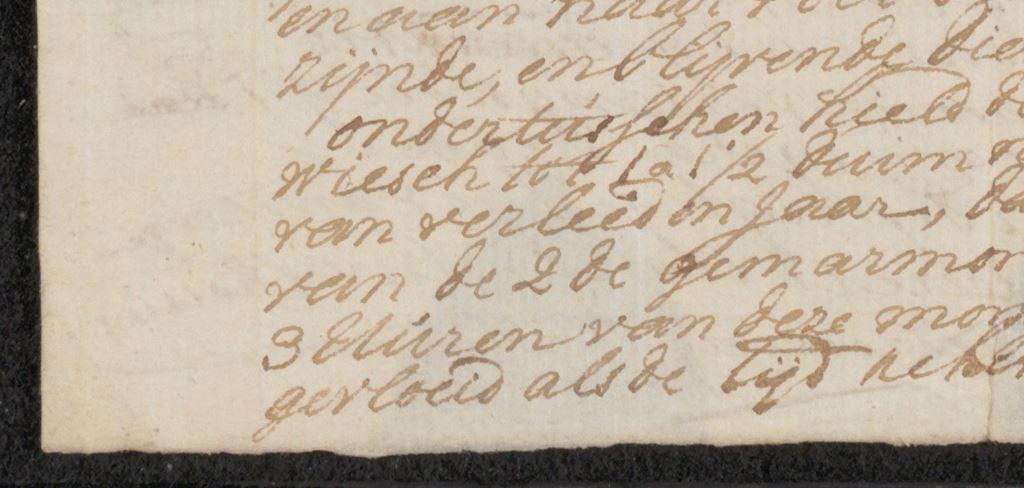 en aan haar
zijnde, en blijvende die
ondertusschen hield d
wiesch tot 1 a 1 1/2 duim
van verleeden Jaar, da
van de 2de gemarmor
3 Uuren van deze mor
gevloeid als de tijd